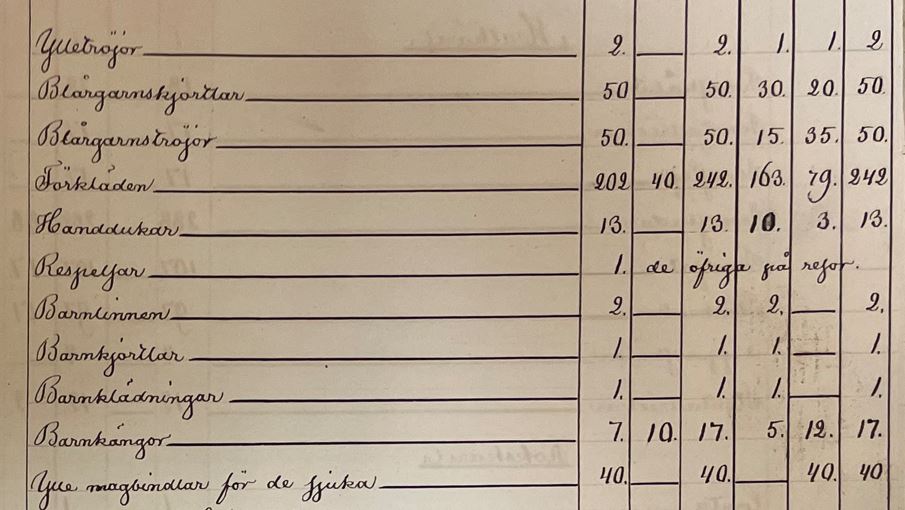 Ylletröjor 2. — 2. 1. 1. 2
Blångarnskjortlar 50 — 50. 30. 20. 50.
Blångarnströjor 50. — 50. 15. 35. 50.
Förkläden 202 40. 242. 163. 79. 242
Handdukar 13. — 13. 10. 3. 13.
Respelsar 1. de öfriga på resor.
Barnlinnen 2. — 2. 2. — 2.
Barnkjortlar 1. — 1. 1. — 1.
Barnklädningar 1. — 1. 1. — 1.
Barnkängor 7. 10. 17. 5. 12. 17.
Ylle magbindlar för de sjuka 40. — 40. — 40. 40